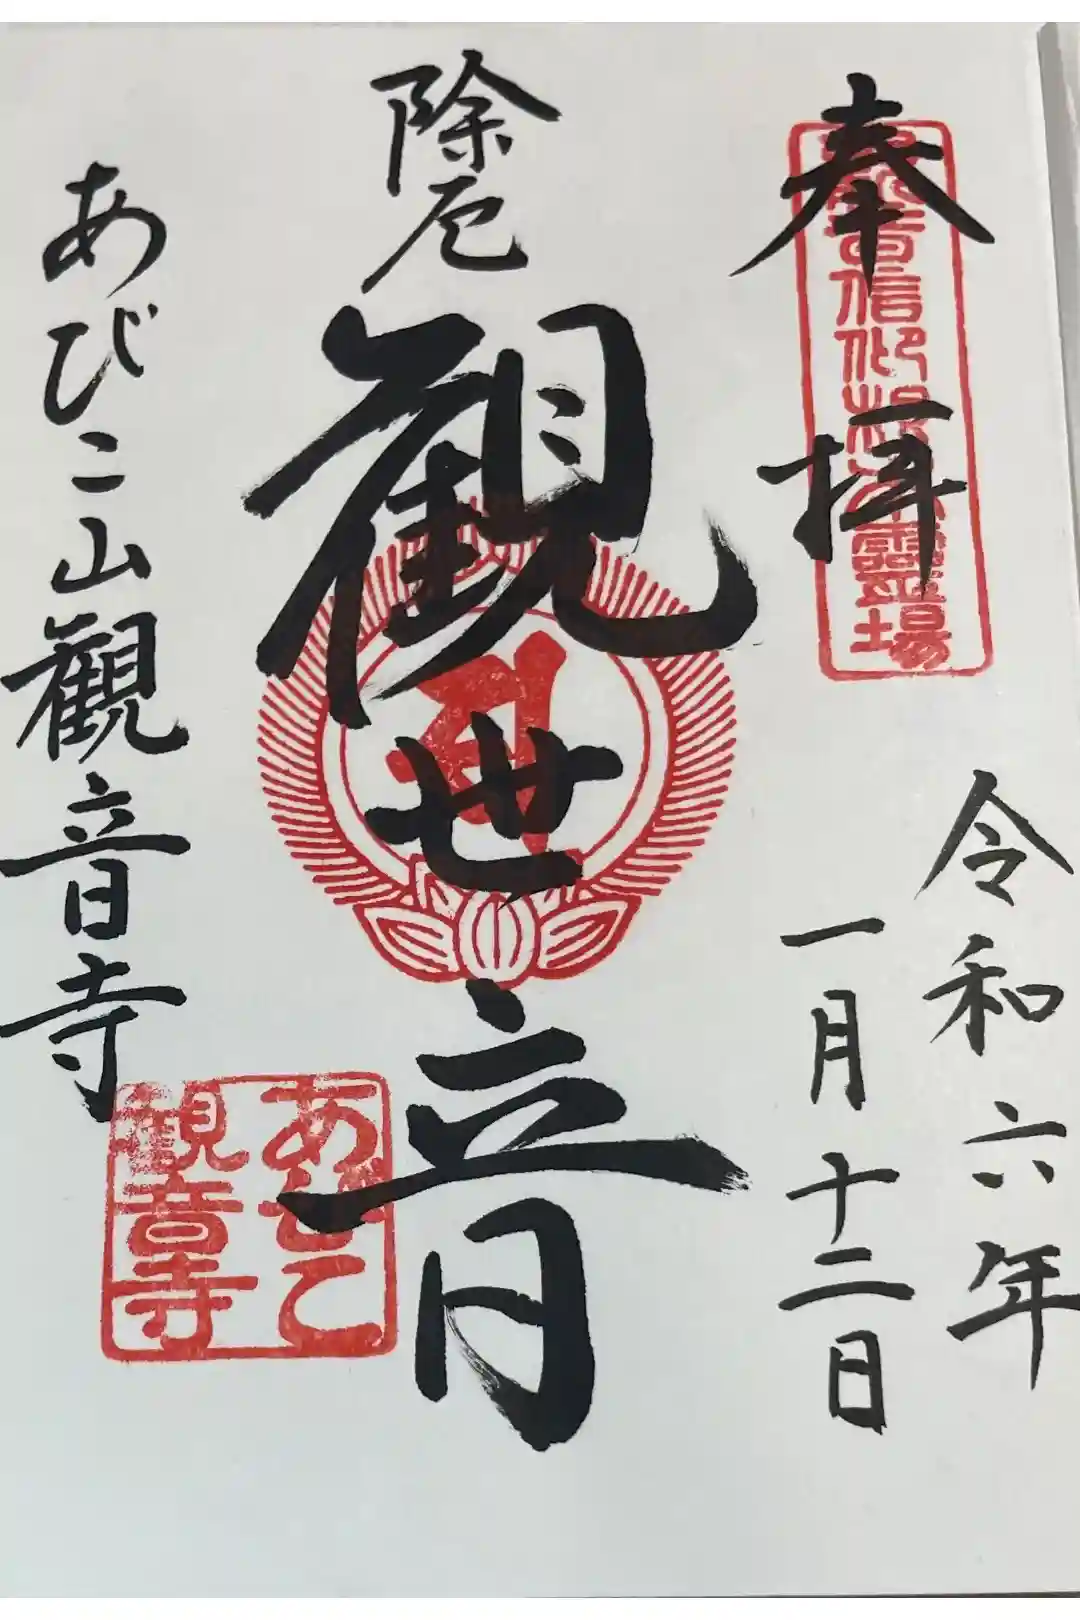 奉拝
信仰根本霊場
令和六年
一月十二日
除厄
観世音
あびこ山観音寺
あびこ
観音寺